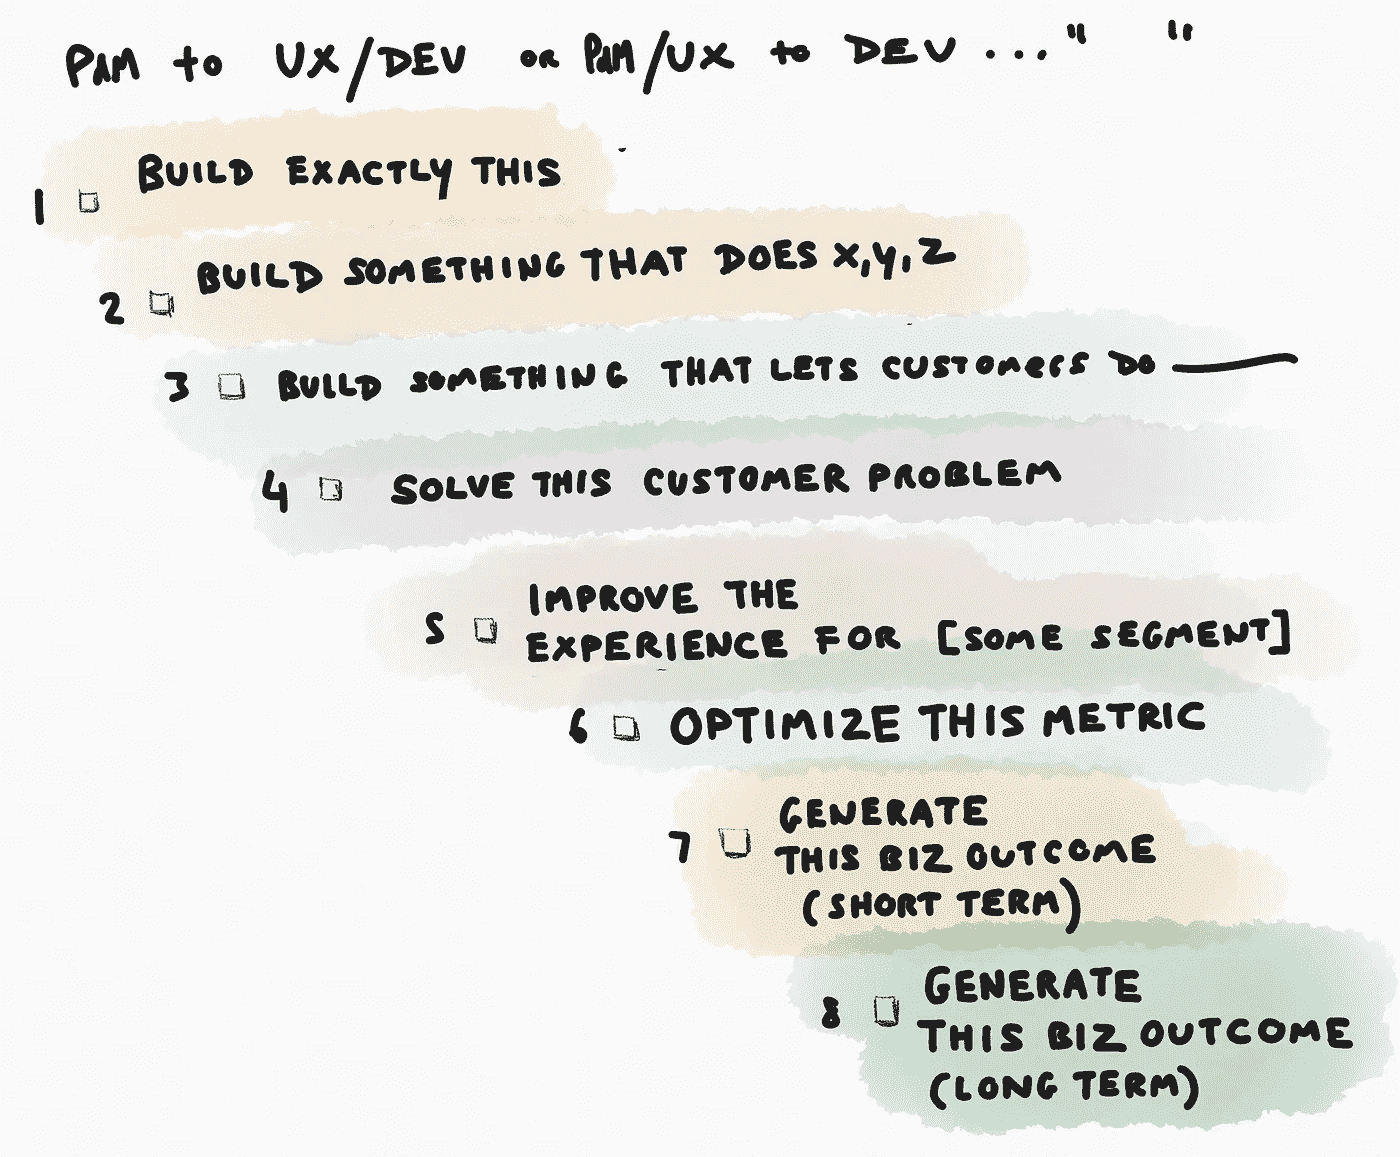 PAM to UX/DEV or PAM/UX to DEV ..." "
1 BUILD EXACTLY THIS
2 BUILD SOMETHING THAT DOES X,Y,Z
3 BUILD SOMETHING THAT LETS CUSTOMERS DO ―
4 SOLVE THIS CUSTOMER PROBLEM
5 IMPROVE THE
EXPERIENCE FOR [SOME SEGMENT]
6 OPTIMIZE THIS METRIC
7 GENERATE
THIS BIZ OUTCOME
(SHORT TERM)
8 GENERATE
THIS BIZ OUTCOME
(LONG TERM)